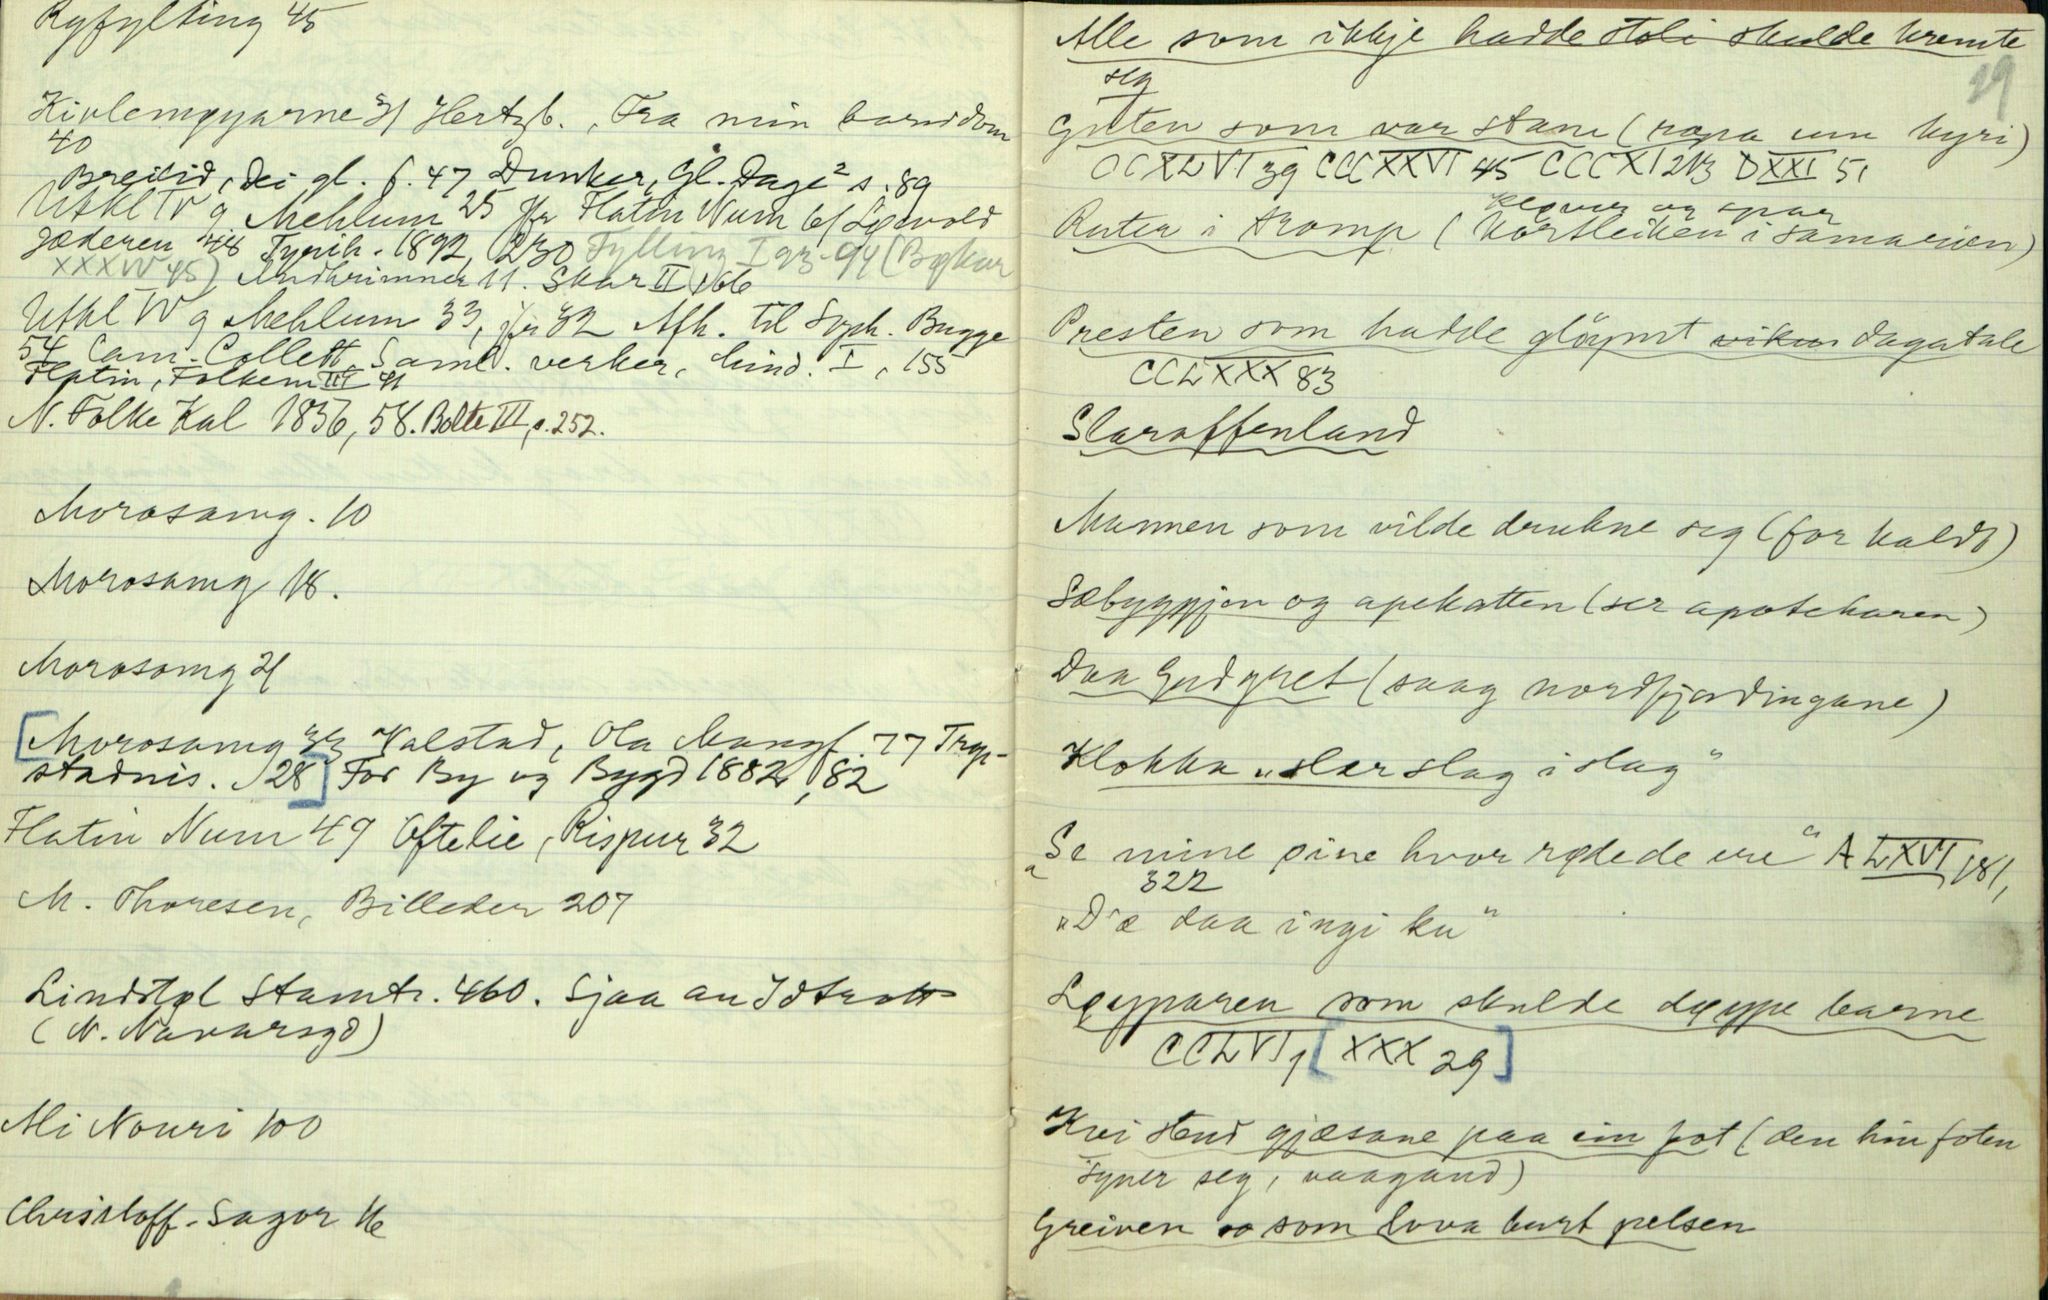 Ryfylking 45
Kivlemøyarne 21 Hertzb., Fra min barndom
40
Breilid, Dei gl. f. 47 Dunker, Gl. Dage² s. 89
Utkl IV 9 Mehlum 25 jfr Flatin Num 6/ Løvold
Jæderen 44 Tyrih. 1892, 230 Fylling I 93-94 (Bøkur
XXXIV 45) Andhrimner 11. Skar II 166
Utkl IV 9 Mehlum 33, jfr 32 Afh. til Soph. Bugge
54 Cam. Collett, Saml. verker, Mind. I, 155
Flatin, Folkem III 41
N. Folke Kal 1856, 58. Bolte III, s. 252.
Morosamg. 10
Morosamg 18.
Morosamg 21
[Morosamg 33 Valstad, Ola Mangf. 77 Trøg-
stadnis. 28] For By og Bygd 1882, 82
Flatin Num 49 Oftelie, Rispur 32
M. Thoresen, Billeder 207
Lindstøl Stamtr. 460. Sjaa au Idtrott
(N. Navarsgd)
Ali Nouri 100
Christoff. Sagor 16
Alle som ikkje hadde stoli skulde kremte
seg
29
Guten som var stam (ropa um kyri)
CCXLVI 39 CCCXXVI 45 CCCXI 213 DXXI 51
kløver og spar
Ruter i tromp (Kortleiken i Samarien)
Presten som hadde gløymt vikun dagatale
CCLXXX 83
Slaraffenland
Mannen som vilde drukne seg (for kaldt)
Sæbyggjen og apekatten (ser apotekaren)
Daa Gud gret (saag nordfjordingane)
Klokka "slær slag i slag"
"Se mine øine hvor røde de ere" A LXVI 181,
322
"D'æ daa ingi ku"
Løyparen som skulde døype barne
CCLVI 1 [XXX 29]
Kvi stend gjæsane paa ein fot (den hin foten
syner seg, vaagand)
Greiven som lova burt pelsen